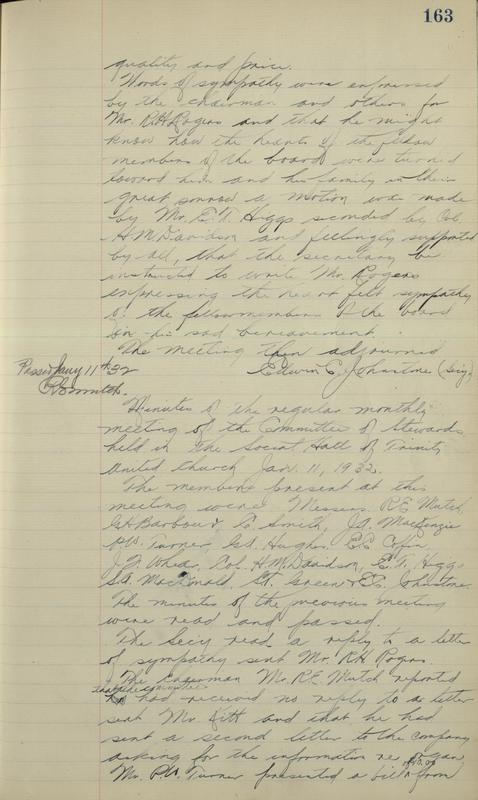 163
quality and price.
Words of sympathy were expressed
by the chairman and others for
Mr. R.H. Rogers and that he might
know how the hearts of the fellow
members of the board were turned
toward him and his family in their
great sorrow a motion was made
by Mr. E.T. Higgs seconded by Col.
H.M. Davidson and feelingly supported
by all, that the secretary be
instructed to write Mr. Rogers
expressing the heart felt sympathy
of the fellow members of the board
in his sad bereavement.
The meeting then adjourned
Passed Jany 11th 32
Edwin C. Johnstone (Sig)
Minutes of the regular monthly
meeting of the Committee of Stewards
held in the Social Hall of Trinity
United Church Jan. 11, 1932.
The members present at this
meeting were Messrs. R.E. Mutch,
G.H. Barbour, C. Smith, J.A. MacKenzie
P.W. Turner, G.A. Hughes, E.E. Coffin,
J.J. Whear, Col. H.M. Davidson, E.T. Higgs
S.A. MacDonald, G.T. Green & E.C. Johnstone.
The minutes of the previous meeting
were read and passed.
The Secy read a reply to a letter
of sympathy sent Mr. R.H. Rogers.
The Chairman Mr. R.E. Mutch reported
had received no reply to a letter
sent Mr. Kitt and that he had
sent a second letter to the company
asking for the information re organ.
Mr. P.W. Turner presented a bill from